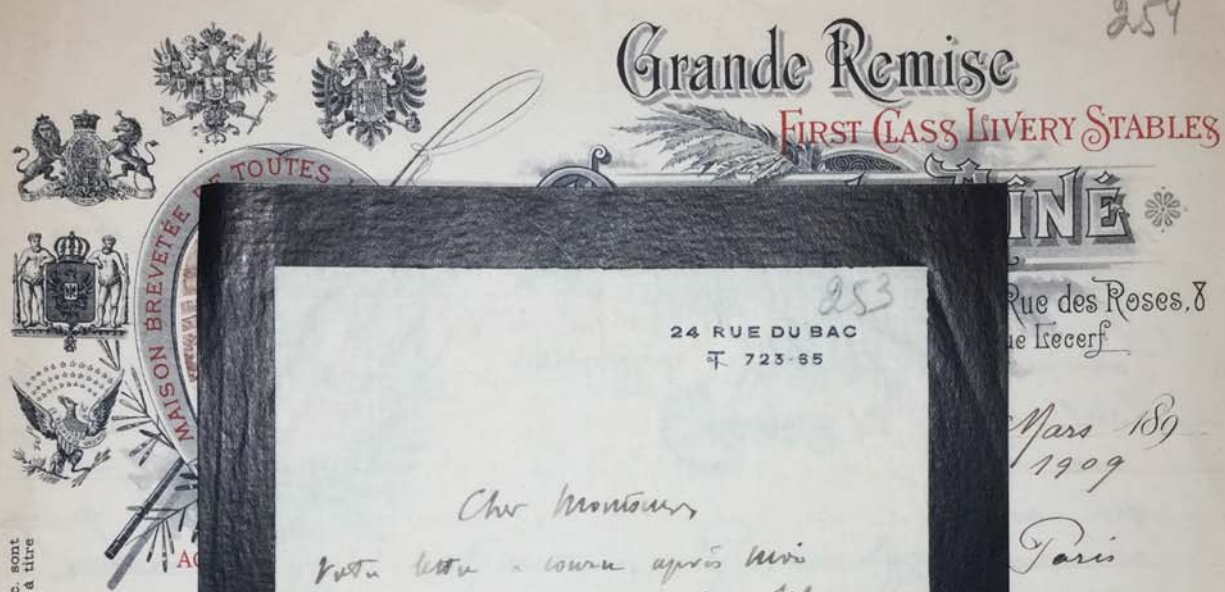 254
Grande Remise
FIRST CLASS LIVERY STABLES
MAISON BREVETÉE DE TOUTES
Rue des Roses, 8
Rue Lecerf
Mars 189
1909
Paris
253
24 RUE DU BAC
T. 723-65
Cher Monsieur,
Votre lettre a couru après moi
c. sont
à titre